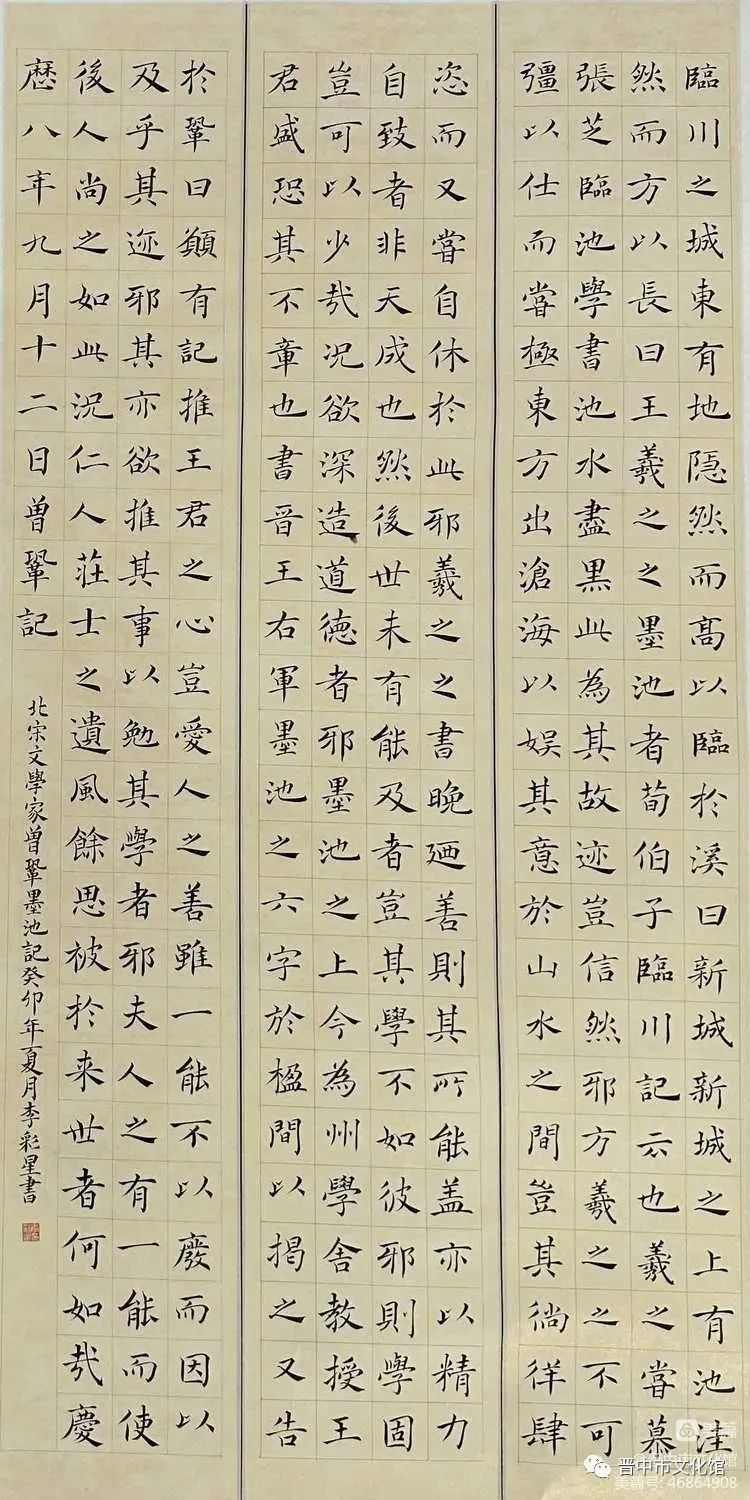 臨川之城東有地隱然而高以臨於溪曰新城新城之上有池洼
然而方以長曰王羲之之墨池者荀伯子臨川記云也羲之嘗慕
張芝臨池學書池水盡黑此為其故迹豈信然邪方羲之之不可
彊以仕而嘗極東方出滄海以娛其意於山水之間豈其徜徉肆
恣而又嘗自休於此邪羲之之書晚廼善則其所能盖亦以精力
自致者非天成也然後世未有能及者豈其學不如彼邪則學固
豈可以少哉况欲深造道德者邪墨池之上今為州學舍教授王
君盛恐其不章也書晉王右軍墨池之六字於楹間以揭之又告
於鞏曰願有記推王君之心豈愛人之善雖一能不以廢而因以
及乎其迹邪其亦欲推其事以勉其學者邪夫人之有一能而使
後人尚之如此況仁人莊士之遺風餘思被於来世者何如哉慶
歷八年九月十二日曾鞏記
北宋文學家曾鞏墨池記癸卯年夏月李彩星書
晋中市文化馆
美篇号: 46864908